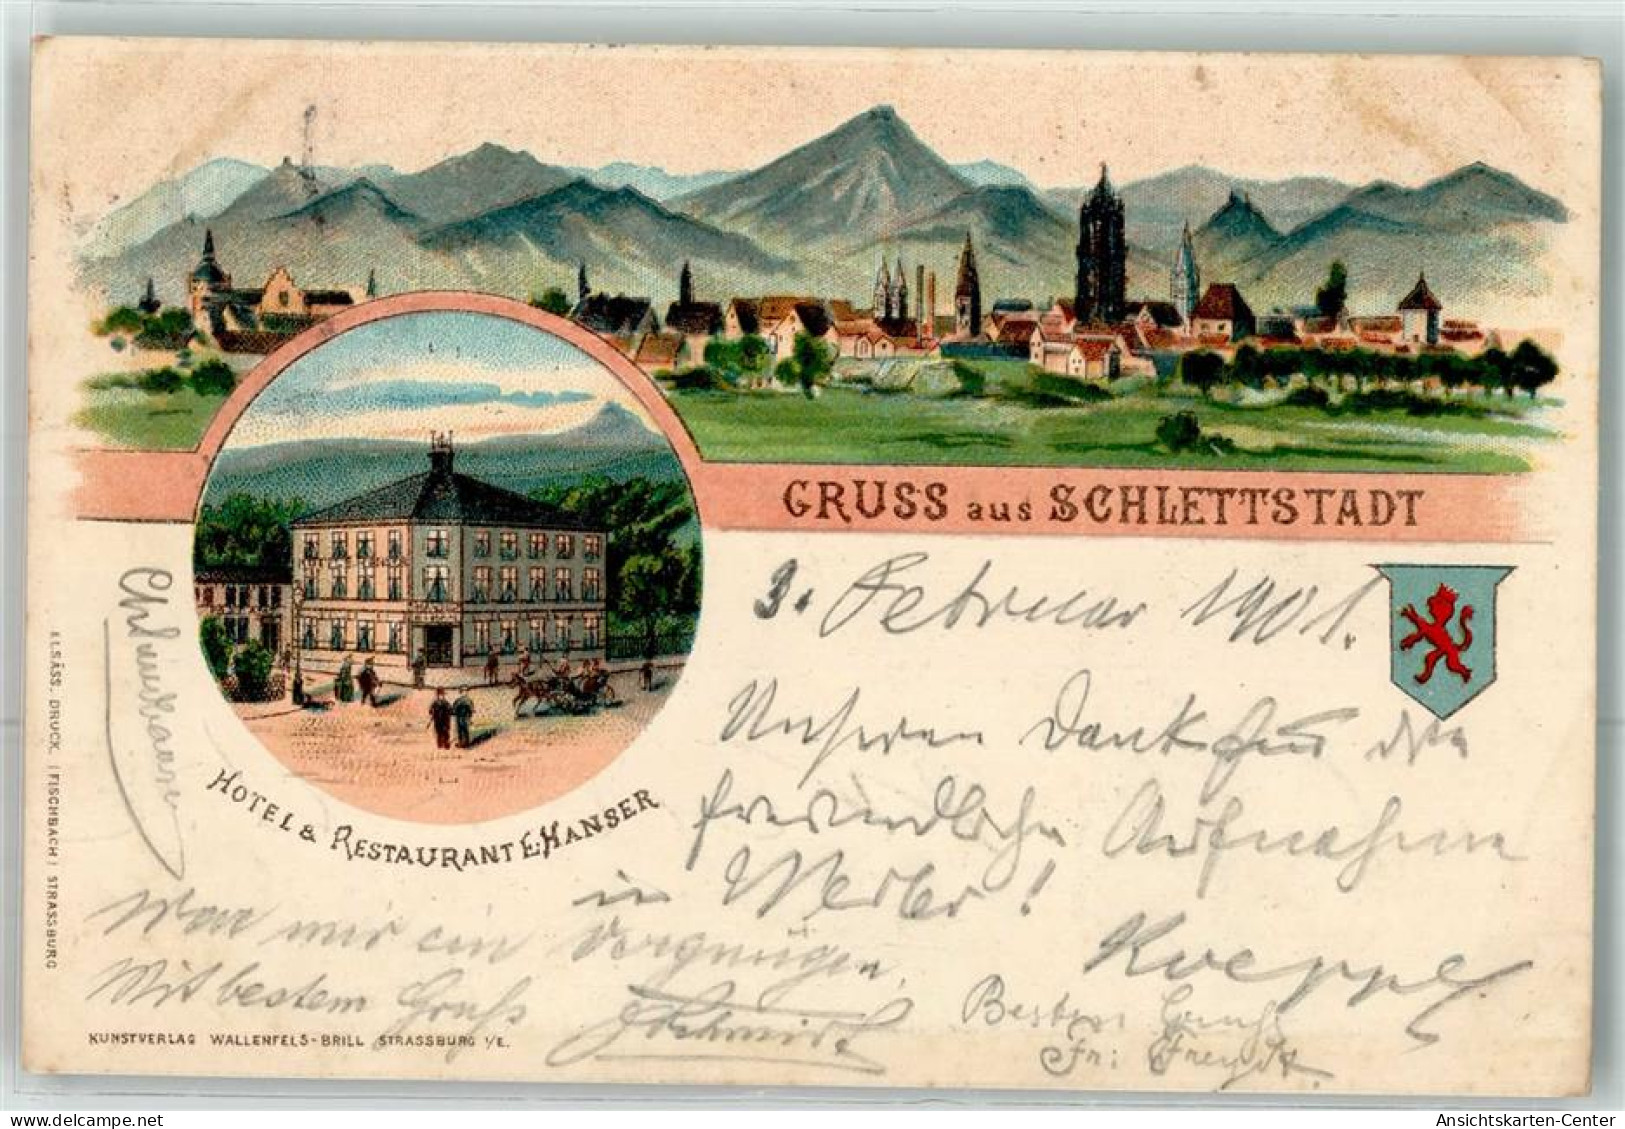 GRUSS aus SCHLETTSTADT
3. Februar 1901.
Unseren Dank für die
freundliche Aufnahme
in Weiler!
Koeppe
HOTEL & RESTAURANT E. HANSER
War mir ein Vergnügen,
Mit bestem Gruß Schmidt
Besten Gruß
Fr:
KUNSTVERLAG WALLENFELS-BRILL STRASSBURG i/E.
ELSÄSS. DRUCK. (FISCHBACH) STRASSBURG
Ansichtskarten-Center